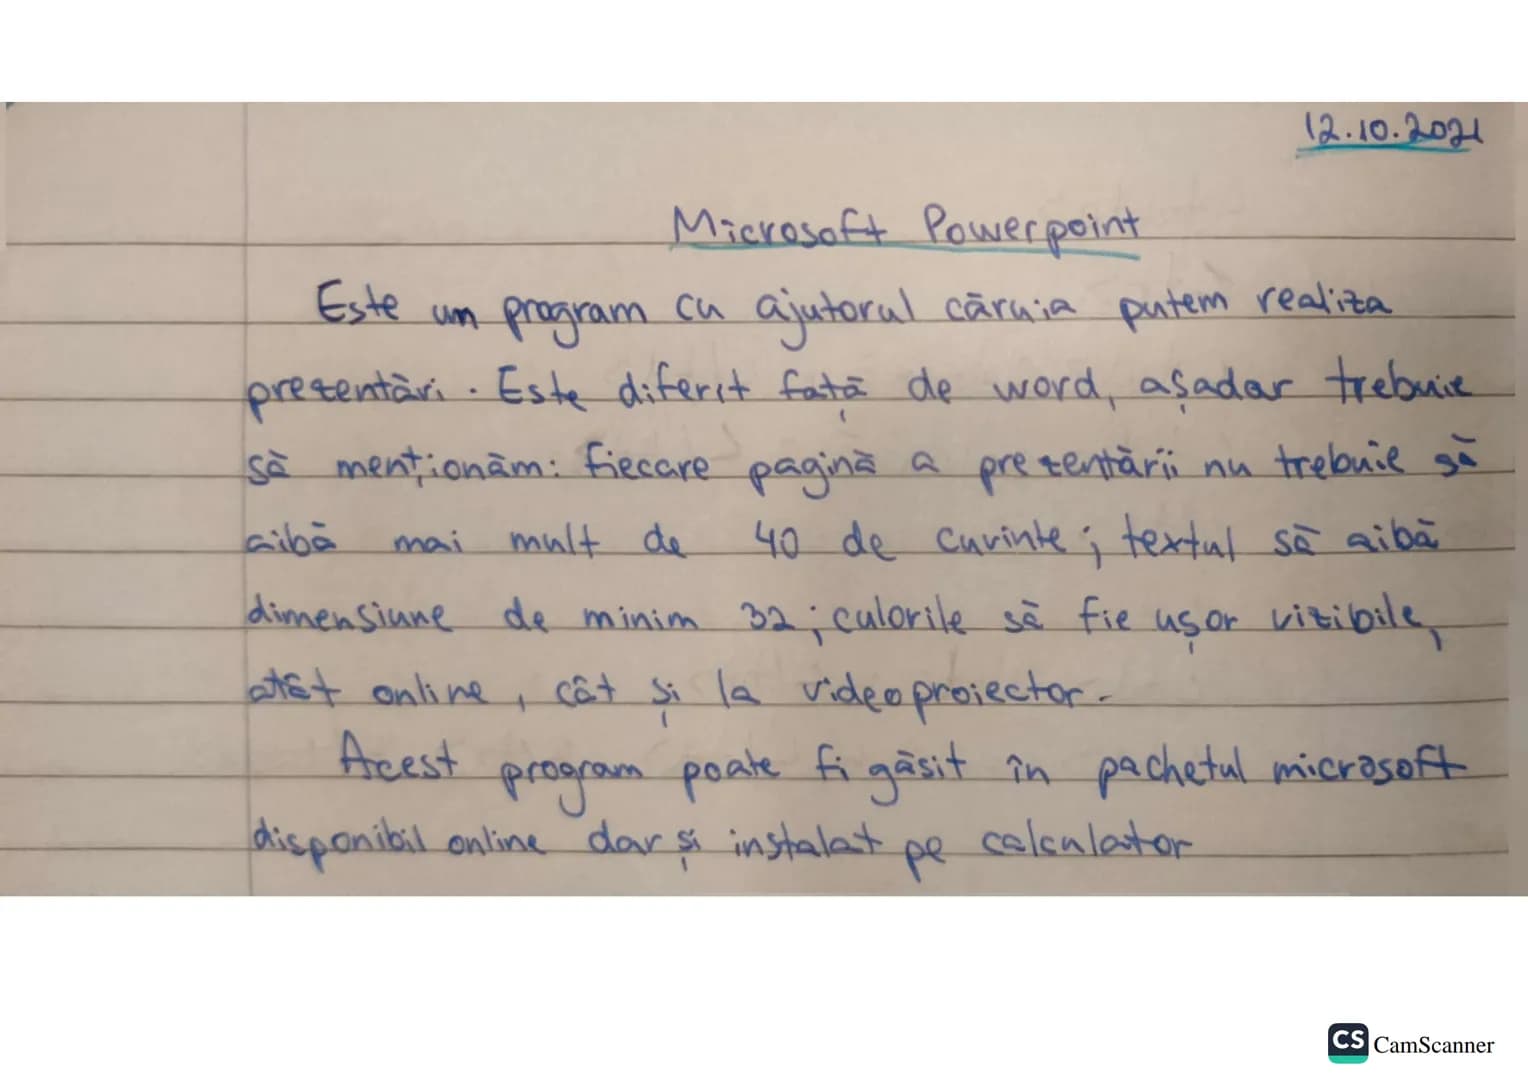 12.10.2021
Microsoft Powerpoint
Este un program cu ajutorul căruia putem realiza
prezentări. Este diferit față de word, așadar trebuie
să menționăm: fiecare pagină a prezentării nu trebuie să
aibă mai mult de 40 de cuvinte; textul să aibă
dimensiune de minim 32; culorile să fie ușor vizibile,
atât online, cât și la videoproiector.
Acest program poate fi găsit în pachetul microsoft
disponibil online dar și instalat pe calculator
CS CamScanner